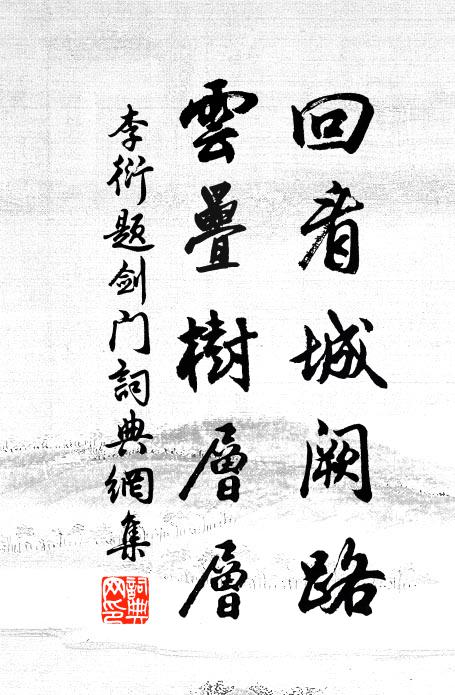 回看城阙路
雲疊樹層層
李衍题剑门詞典網集
詞典网印